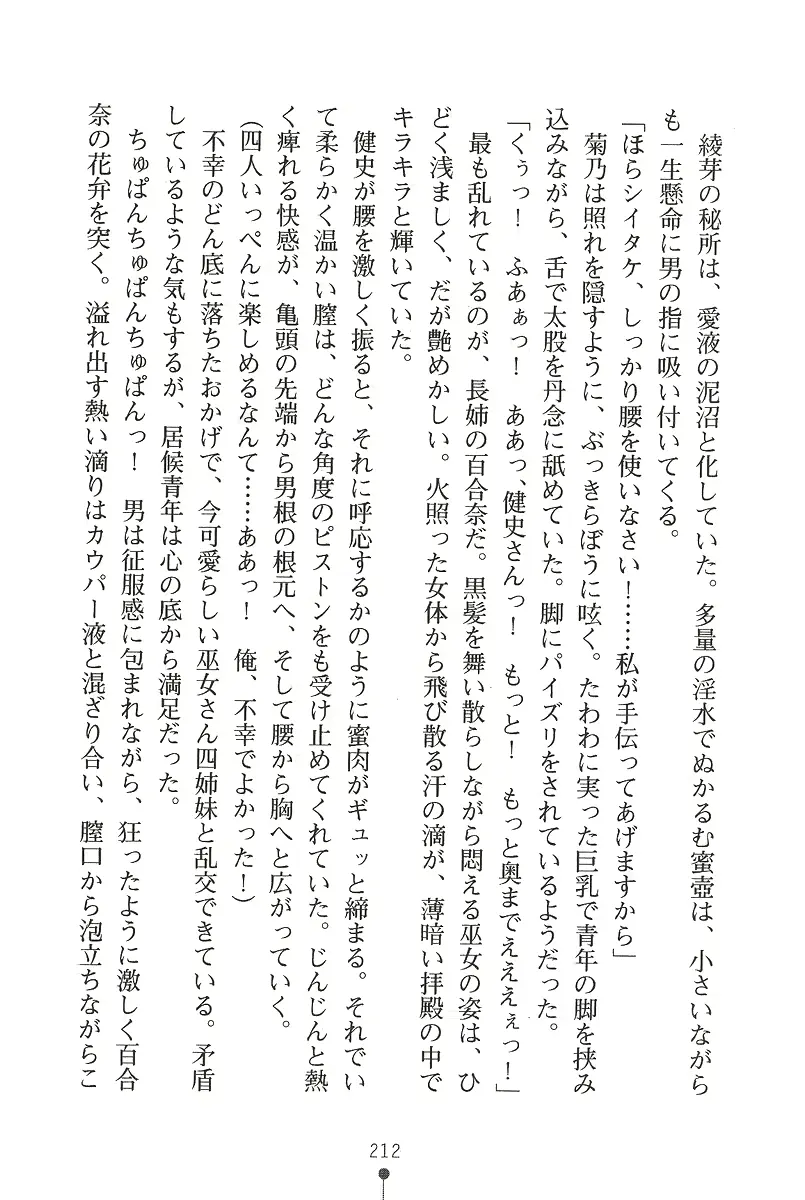 綾芽の秘所は、愛液の泥沼と化していた。多量の淫水でぬかるむ蜜壺は、小さいながら
も一生懸命に男の指に吸い付いてくる。
「ほらシイタケ、しっかり腰を使いなさい！……私が手伝ってあげますから」
菊乃は照れを隠すように、ぶっきらぼうに呟く。たわわに実った巨乳で青年の脚を挟み
込みながら、舌で太股を丹念に舐めていた。脚にパイズリをされているようだった。
「くぅっ！　ふあぁっ！　ああっ、健史さんっ！　もっと！　もっと奥までえええぇっ！」
最も乱れているのが、長姉の百合奈だ。黒髪を舞い散らしながら悶える巫女の姿は、ひ
どく浅ましく、だが艶めかしい。火照った女体から飛び散る汗の滴が、薄暗い拝殿の中で
キラキラと輝いていた。
健史が腰を激しく振ると、それに呼応するかのように蜜肉がギュッと締まる。それでい
て柔らかく温かい膣は、どんな角度のピストンをも受け止めてくれていた。じんじんと熱
く痺れる快感が、亀頭の先端から男根の根元へ、そして腰から胸へと広がっていく。
（四人いっぺんに楽しめるなんて……ああっ！　俺、不幸でよかった！）
不幸のどん底に落ちたおかげで、今可愛らしい巫女さん四姉妹と乱交できている。矛盾
しているような気もするが、居候青年は心の底から満足だった。
ちゅぱんちゅぱんちゅぱんっ！　男は征服感に包まれながら、狂ったように激しく百合
奈の花弁を突く。溢れ出す熱い滴りはカウパー液と混ざり合い、膣口から泡立ちながらこ
212